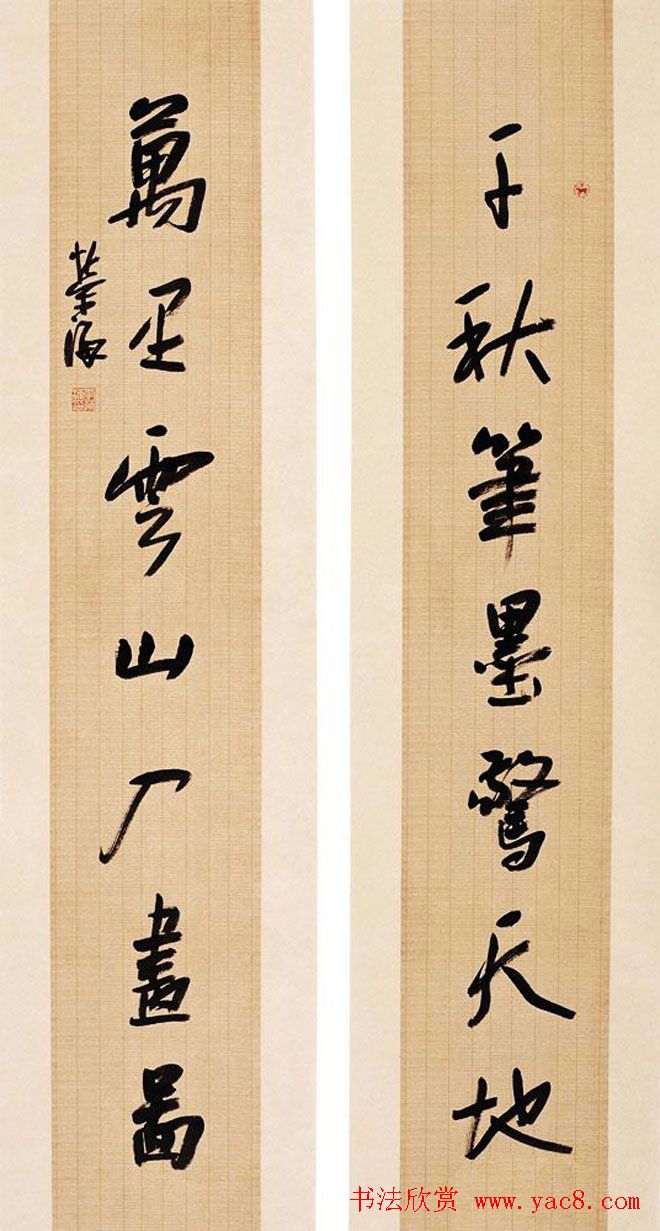 千秋筆墨驚天地
萬里雲山入畫圖
书法欣赏 www.yac8.com